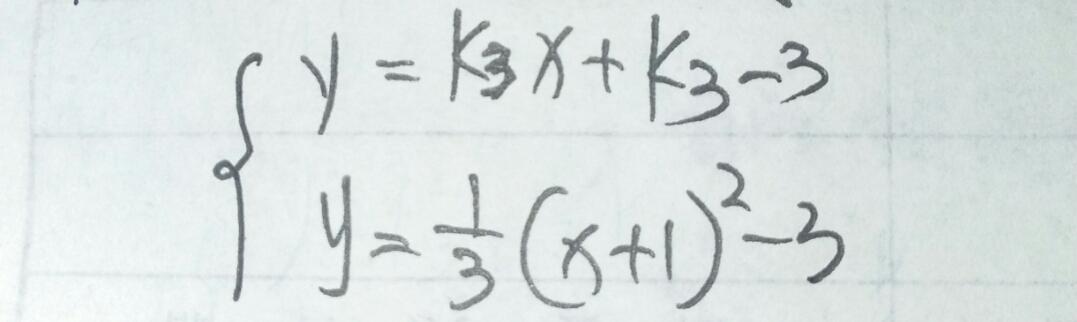 y = k₃x + k₃ - 3
y = 1/3 (x+1)² - 3